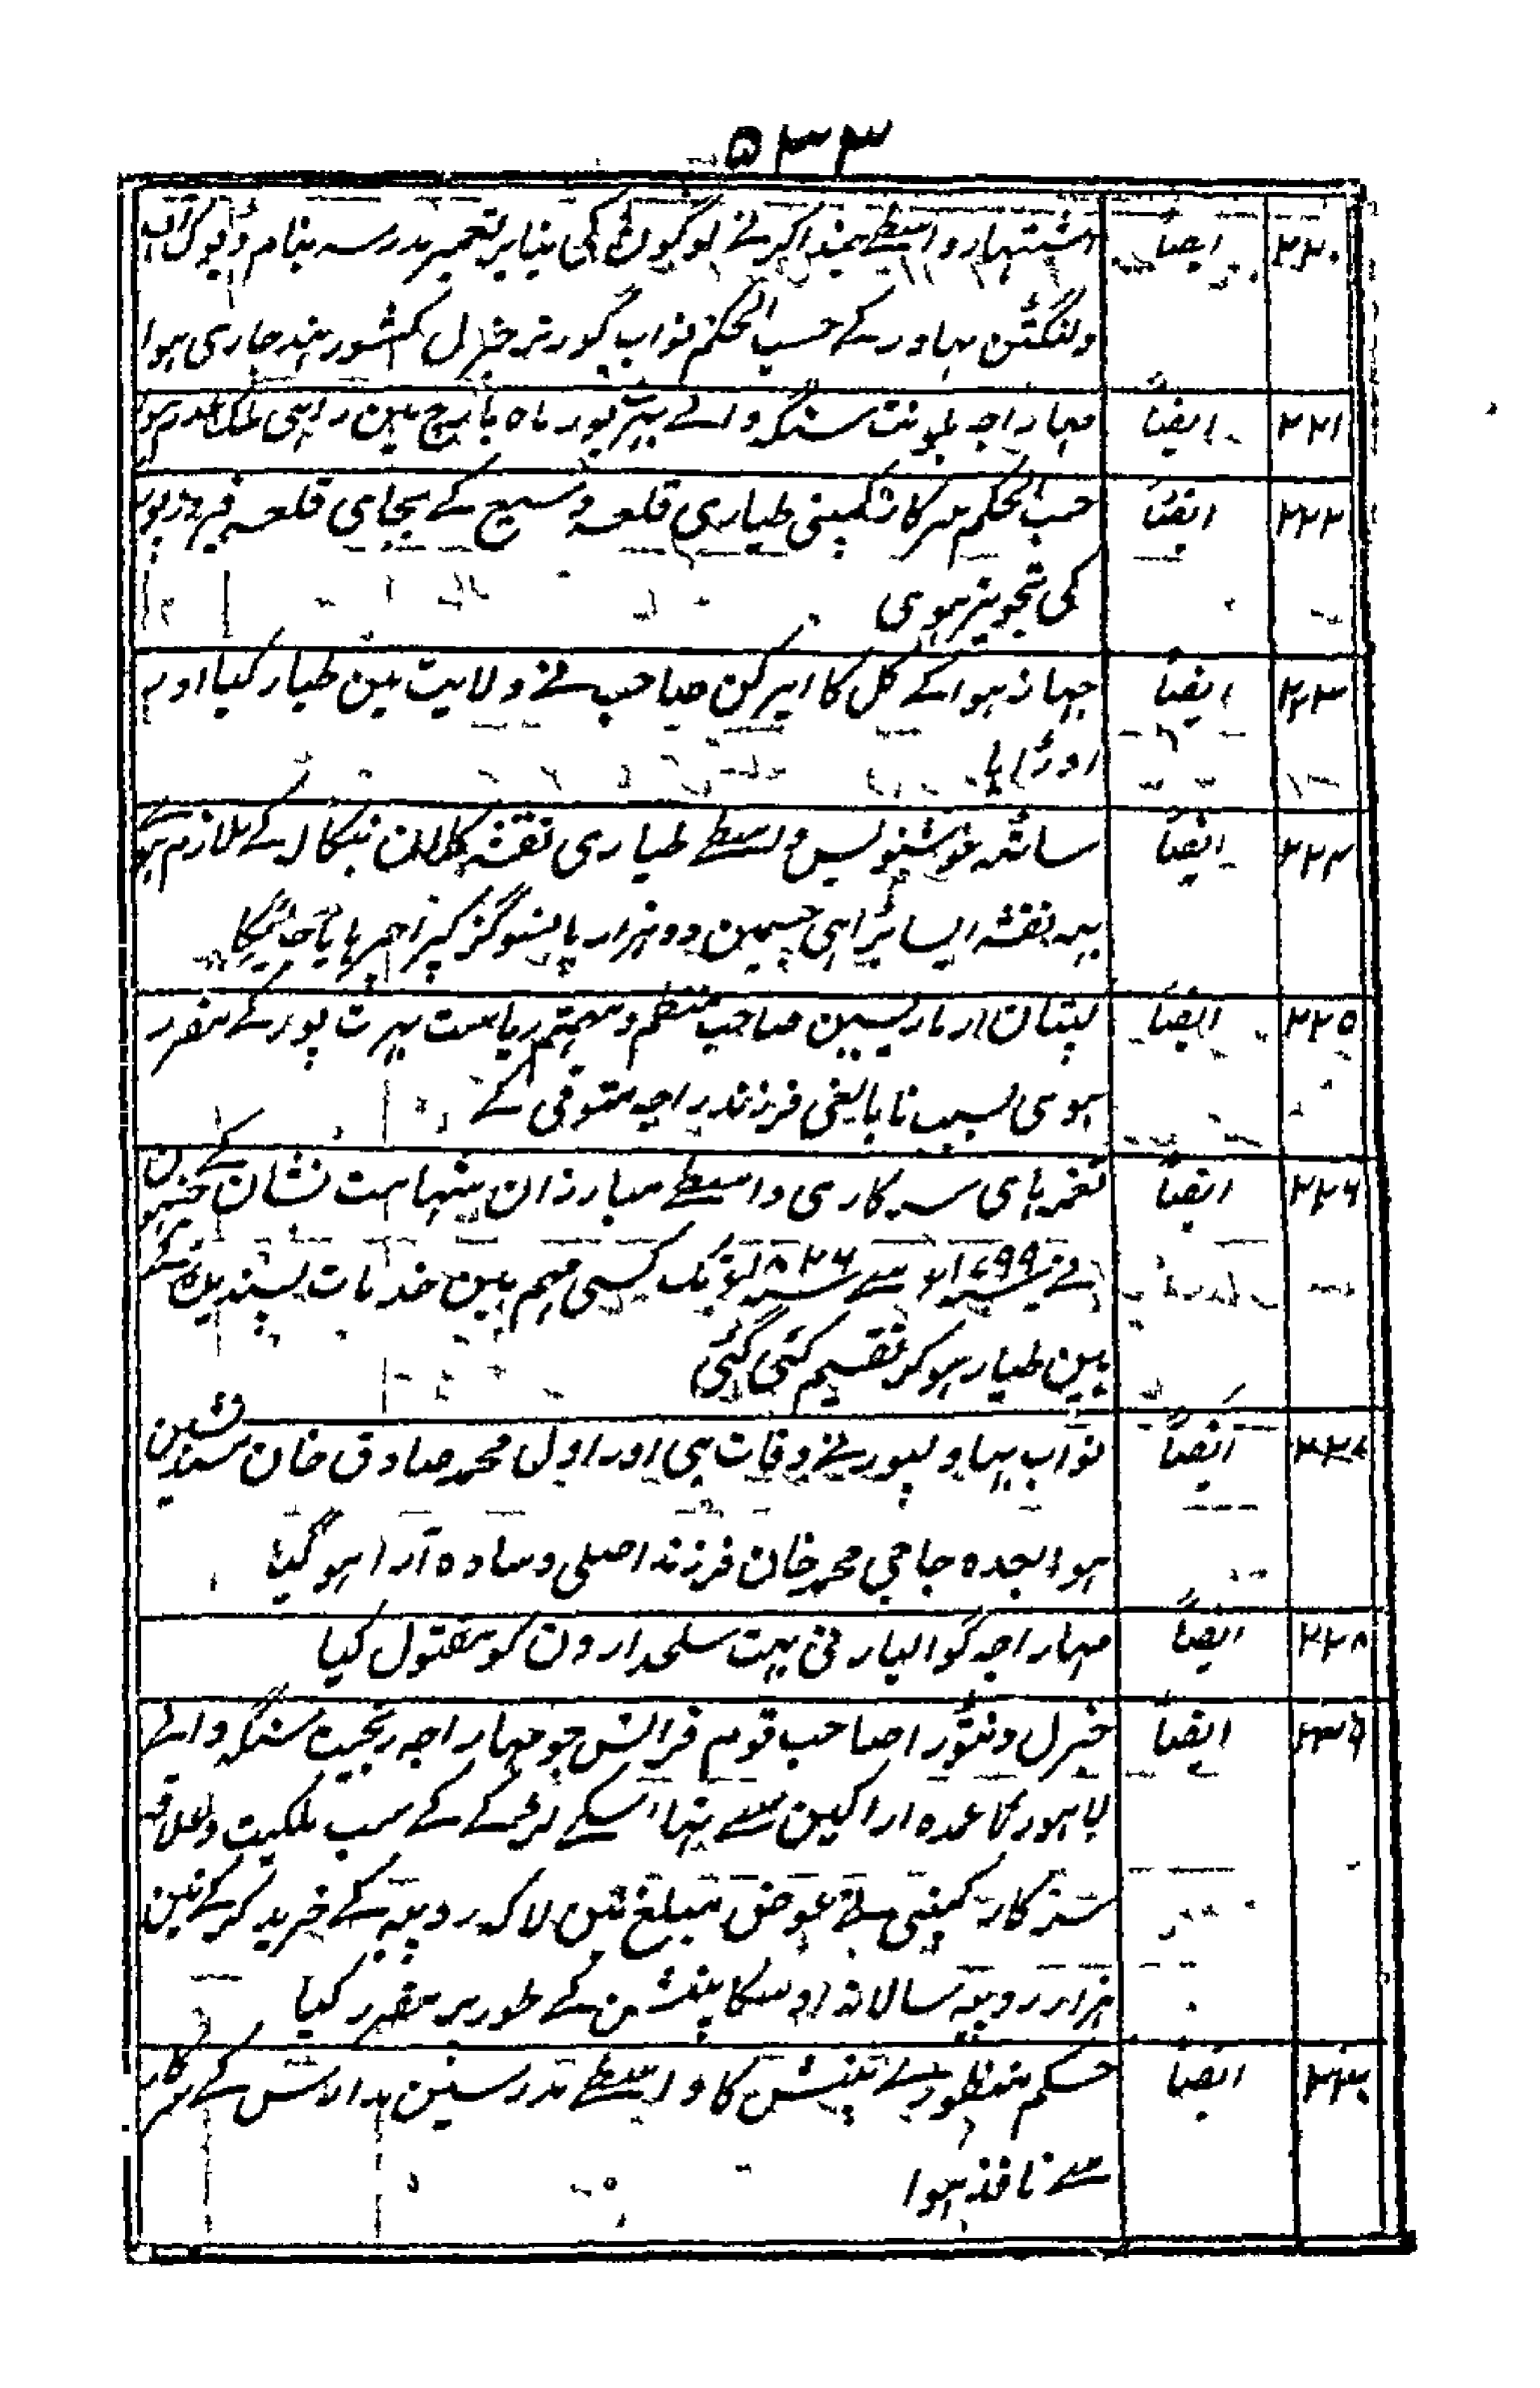 ۵۳۳
۲۲۰ ایضاً اشتہار واسطے چندا کرنے لوگون کی بنابر تعمیر مدرسہ بنام ڈیوک آف
ولنگٹن بہادر کے حسب الحکم نواب گورنر جنرل کشور ہند جاری ہوا
۲۲۱ ایضاً مہاراجہ بلونت سنگہ والے بہرتپور ماہ مارچ مین راہی ملک عدم ہوا
۲۲۲ ایضاً حسب الحکم سرکار کمپنی طیاری قلعہ وسیع کے بجای قلعہ فیروزپور
کی تجویز ہوی
۲۲۳ ایضاً جہاز ہوا کے کل کا ایرکن صاحب نے ولایت مین طیار کیا اور
اوڑایا
۲۲۴ ایضاً ساٹھہ خوشنویس واسطے طیاری نقشہ کلان بنگال کے ملازم
یہہ نقشہ ایسا بڑا ہی جسمین دو ہزار پانسو گز کپڑا چڑہایا جائیگا
۲۲۵ ایضاً کپتان صاحب منتظم و مہتمم ریاست بہرت پور کے مقرر
ہوی بسبب نابالغی فرزند راجہ متوفی کے
۲۲۶ ایضاً تغمہ ہای سرکاری واسطے مبارزان شہامت نشان کے جنہون
نے ۱۷۹۹ سے ۸۲۶ تک کسی مہم مین خدمات پسندیدہ
مین طیار ہو کر تقسیم کئی گئی
۲۲۷ ایضاً نواب بہاولپور نے وفات پی اور اول محمد صادق خان مسند نشین
ہوا بعدہ حاجی محمد خان فرزند اصلی وسادہ آرا ہو گیا
۲۲۸ ایضاً مہاراجہ گوالیار نی بہت سلحدارون کو مقتول کیا
۲۲۹ ایضاً جنرل ونٹورا صاحب قوم فرانس جو مہاراجہ رنجیت سنگہ والے
لاہور کا عمدہ اراکین سے تہا اسکے لڑکے کے سب ملکیت و علاقہ
سرکار کمپنی نے عوض مبلغ تین لاکہ روپیہ کے خرید کرکے تین
ہزار روپیہ سالانہ اوسکا پنشن کے طور پر مقرر کیا
۲۳۰ ایضاً حکم منظوری پنشن کا واسطے مدرسین مدراس کے سرکار
سے نافذ ہوا